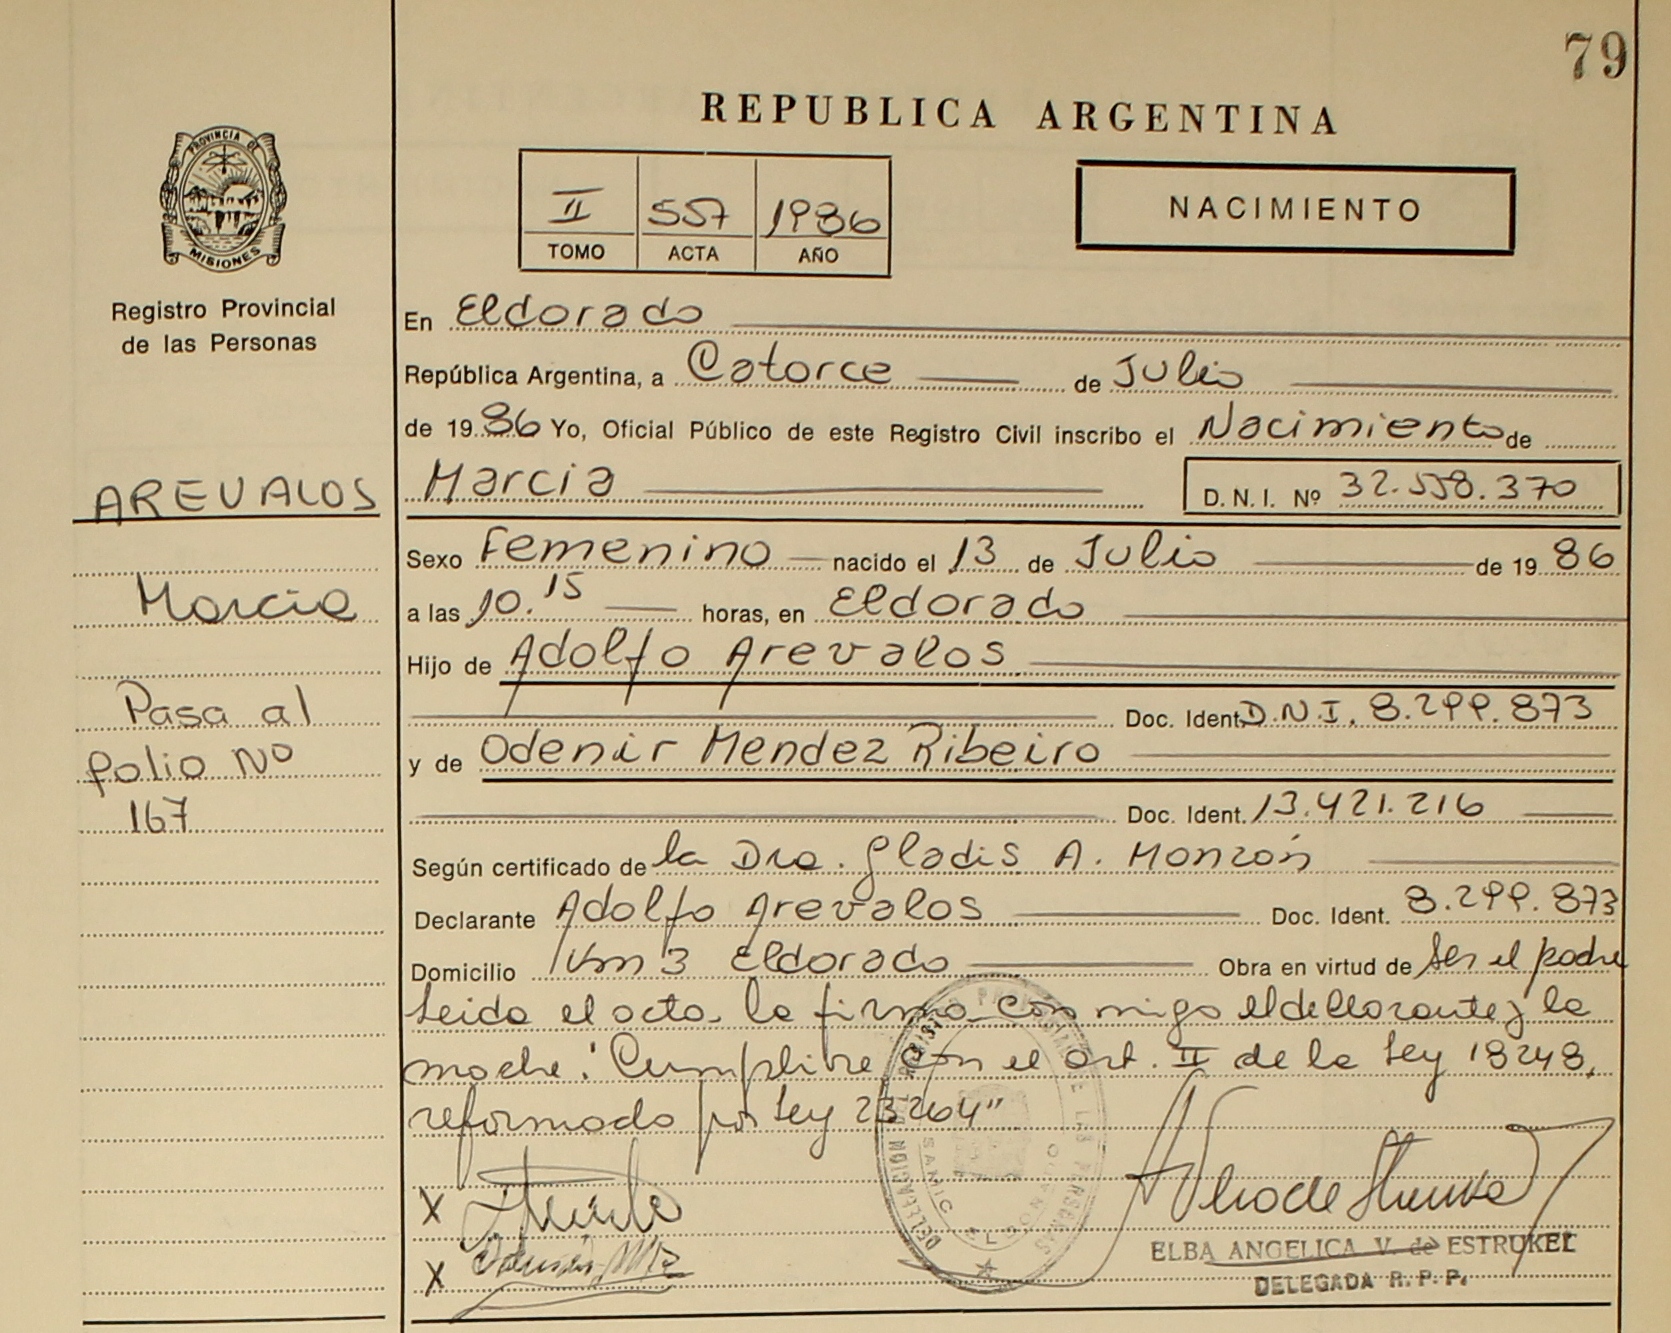 79
REPUBLICA ARGENTINA
PROVINCIA DE
MISIONES
Registro Provincial
de las Personas
II 557 1986
TOMO ACTA AÑO
NACIMIENTO
En Eldorado
República Argentina, a Catorce de Julio
de 1986 Yo, Oficial Público de este Registro Civil inscribo el Nacimiento de
AREVALOS
Marcia D.N.I. Nº 32.558.370
Sexo Femenino nacido el 13 de Julio de 1986
Marcia
a las 10.15 horas, en Eldorado
Hijo de Adolfo Arevalos
Pasa al
Doc. Ident. D.N.I. 8.299.873
folio Nº
y de Odenir Mendez Ribeiro
167
Doc. Ident. 13.421.216
Según certificado de la Dra. Gladis A. Monzón
Declarante Adolfo Arevalos Doc. Ident. 8.299.873
Domicilio Km 3 Eldorado Obra en virtud de ser el padre
Leida el acta la firma con migo el declarante y la
madre. "Cumplire con el art. II de la Ley 18248,
reformado por Ley 23264"
X
X
ELBA ANGELICA V. de ESTRUKEL
DELEGADA R.P.P.